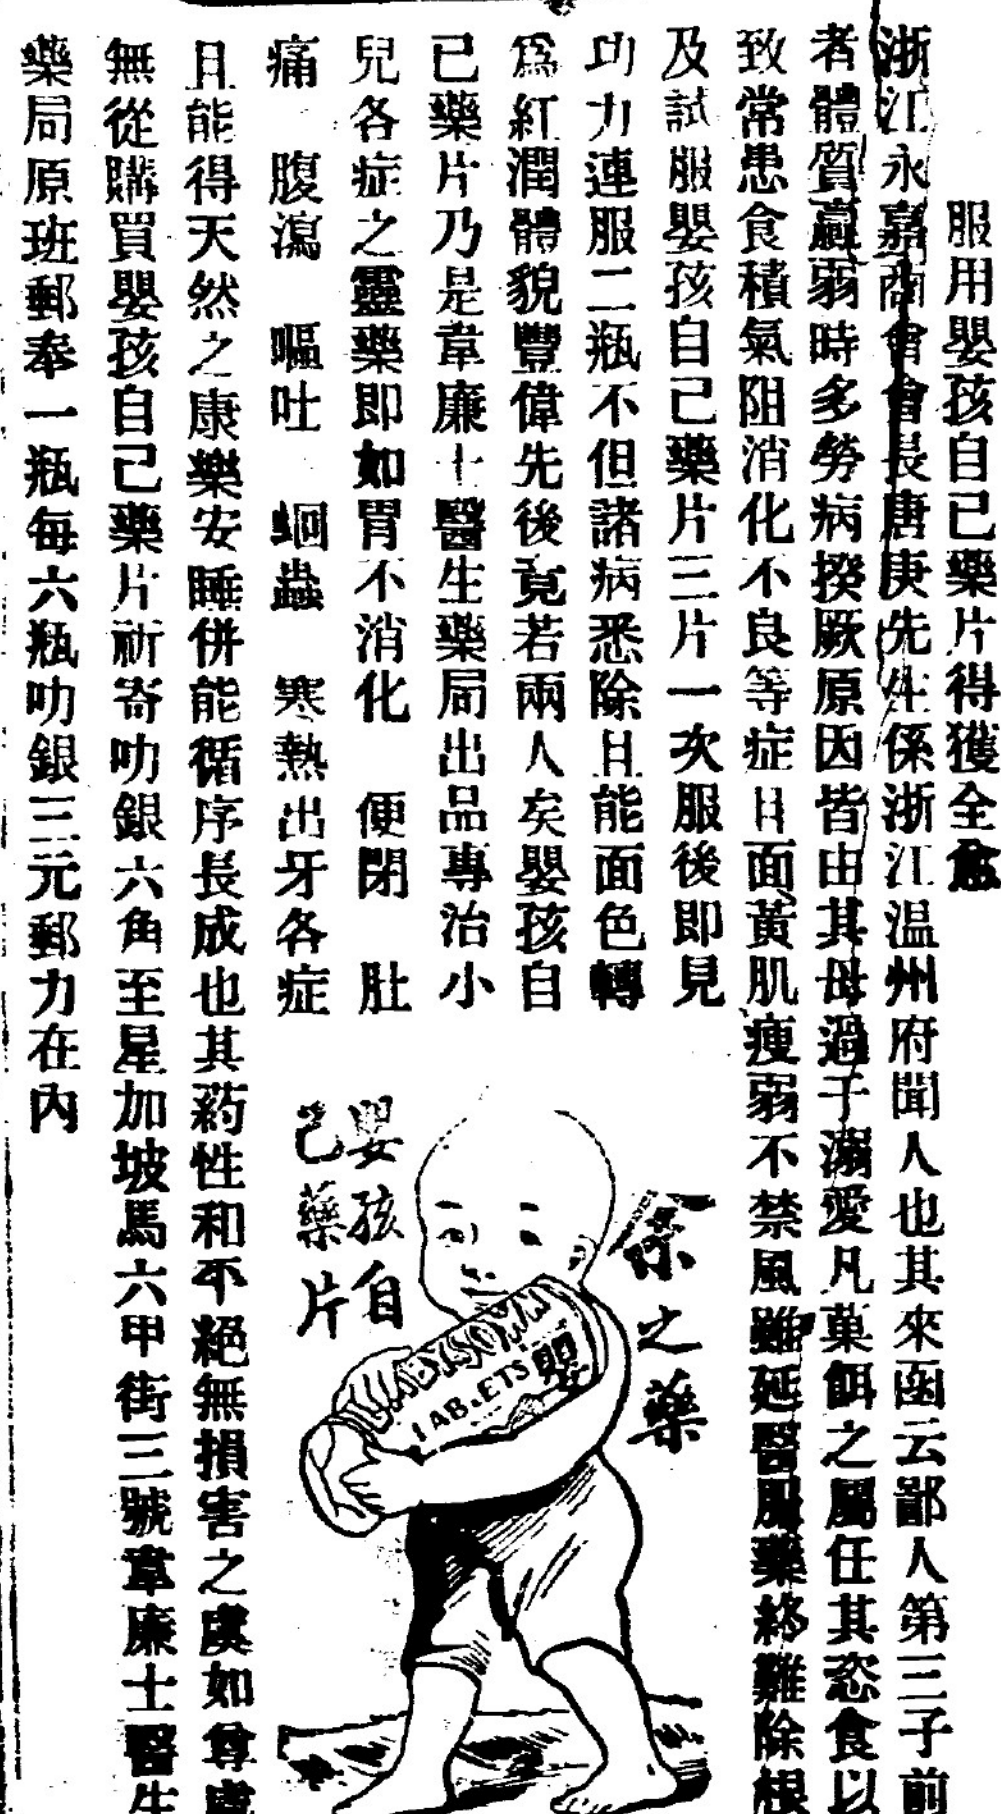 服用嬰孩自己藥片得獲全愈
浙江永嘉商會會長唐庚先生係浙江温州府聞人也其來函云鄙人第三子前
者體質羸弱時多勞病揆厥原因皆由其母過于溺愛凡菓餌之屬任其恣食以
致常患食積氣阻消化不良等症且面黃肌瘦弱不禁風雖延醫服藥終難除根
及試服嬰孩自己藥片三片一次服後即見
功力連服二瓶不但諸病悉除且能面色轉
爲紅潤體貌豐偉先後竟若兩人矣嬰孩自
己藥片乃是韋廉士醫生藥局出品專治小
兒各症之靈藥即如胃不消化 便閉 肚
痛 腹瀉 嘔吐 蛔蟲 寒熱出牙各症
且能得天然之康樂安睡併能循序長成也其葯性和平絕無損害之虞如尊處
無從購買嬰孩自己藥片祈寄叻銀六角至星加坡馬六甲街三號韋廉士醫生
藥局原班郵奉一瓶每六瓶叻銀三元郵力在內
余之藥
嬰孩自
己藥片
BABYSOWN
TABLETS
嬰